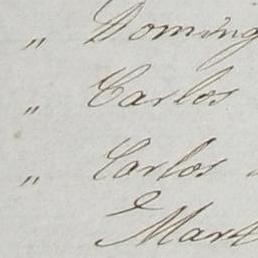 „ Doming
„ Carlos
„ Carlos
E Mart